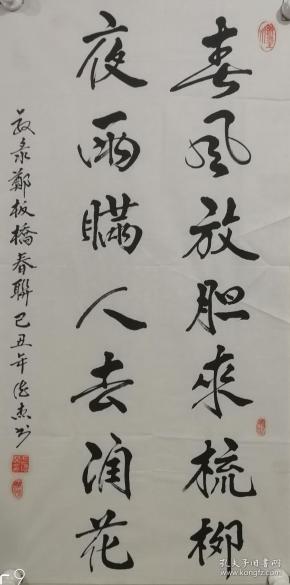 春风放胆来梳柳
夜雨瞒人去润花
敬录鄭板橋春聯己丑年
r9
孔夫子旧书网